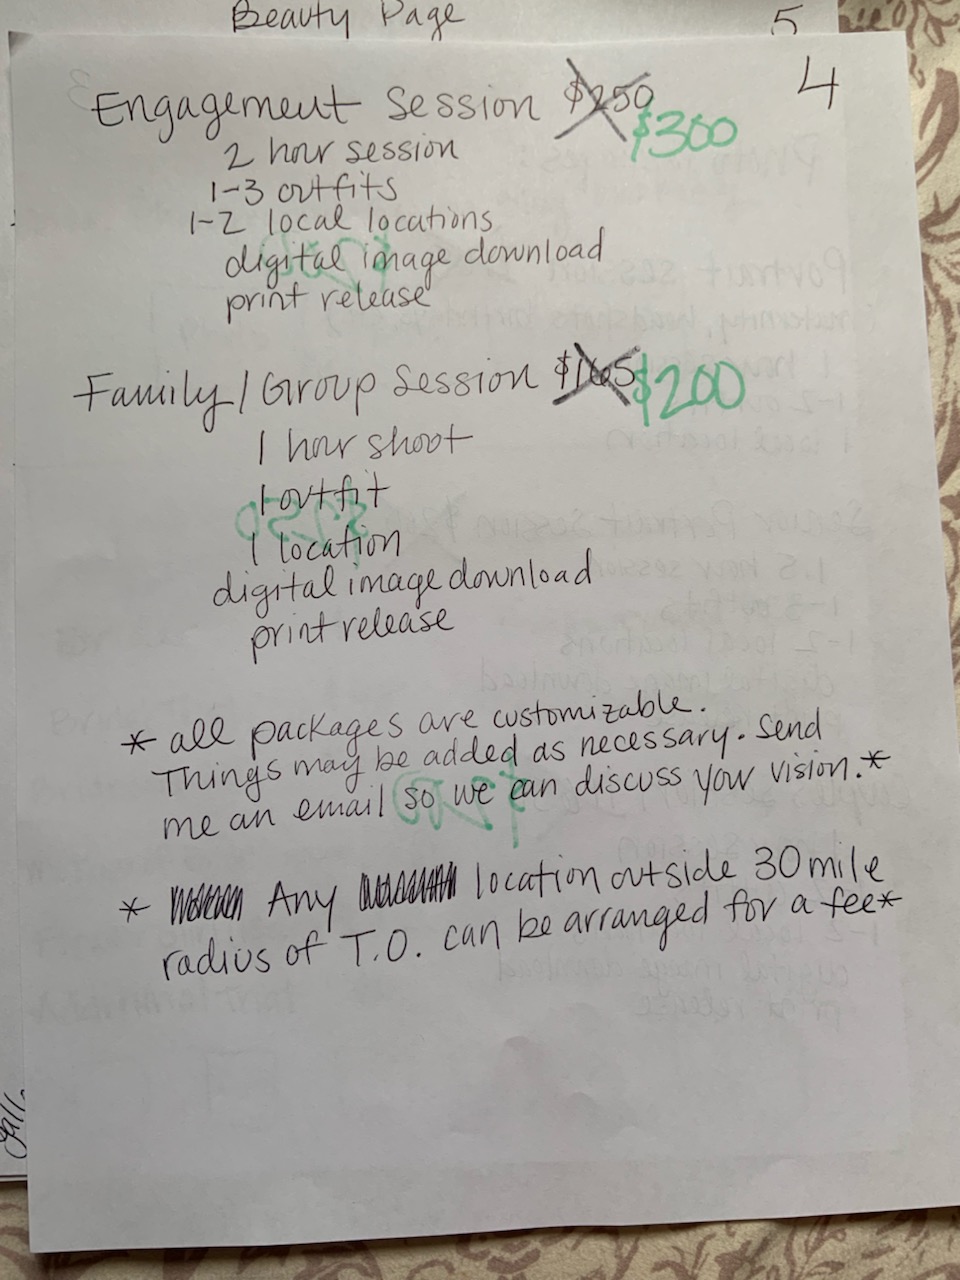 Beauty Page 5
4
Engagement Session $250
$300
2 hour session
1-3 outfits
1-2 local locations
digital image download
print release
Family/Group Session $165 $200
1 hour shoot
1 outfit
1 location
digital image download
print release
* all packages are customizable.
Things may be added as necessary. Send
me an email so we can discuss your vision.*
* Any location outside 30 mile
radius of T.O. can be arranged for a fee*